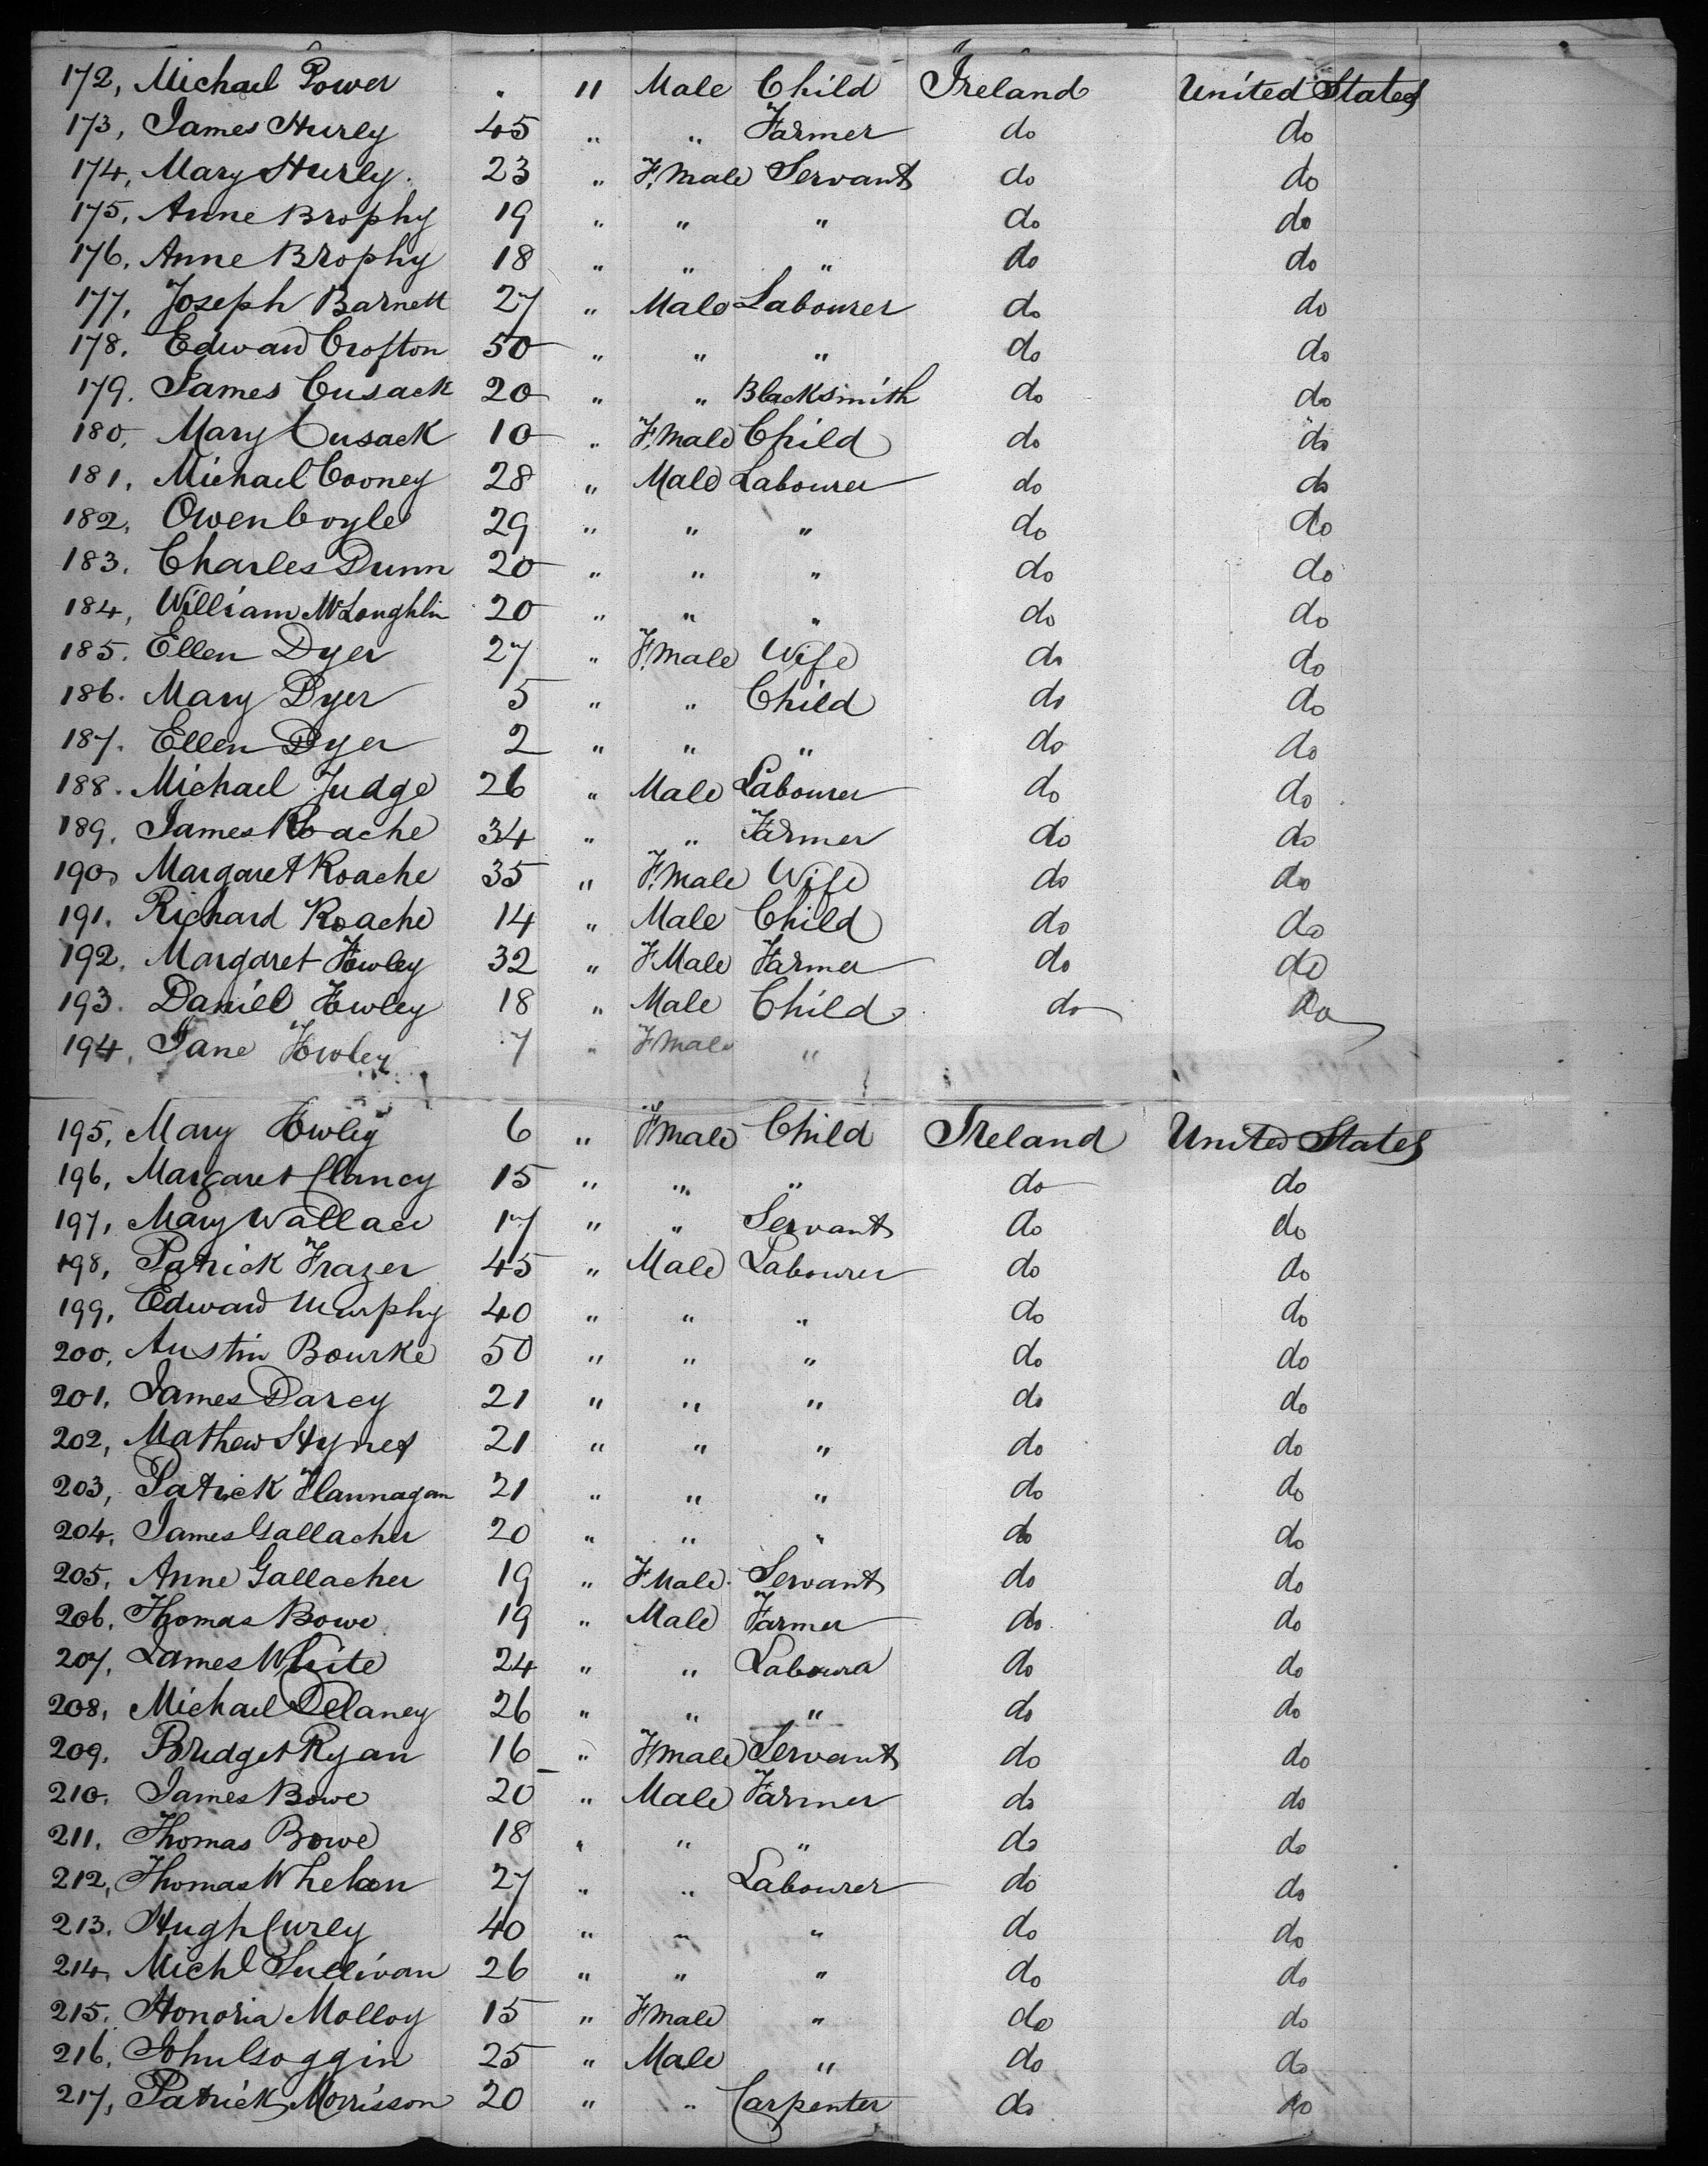 172, Michael Power . 11 Male Child Ireland United States
173, James Hurly 45 " " Farmer do do
174, Mary Hurly. 23 " F.male Servant do do
175, Anne Brophy 19 " " " do do
176, Anne Brophy 18 " " " do do
177, Joseph Barnett 27 " Male Labourer do do
178. Edward Crofton 50 " " " do do
179. James Cusack 20 " " Blacksmith do do
180, Mary Cusack 10 " F.male Child do do
181, Michael Cooney 28 " Male Labourer do do
182, Owen Coyle 29 " " " do do
183, Charles Dunn 20 " " " do do
184, William McLoughlin 20 " " " do do
185. Ellen Dyer 27 " F.male Wife do do
186. Mary Dyer 5 " " Child do do
187. Ellen Dyer 2 " " " do do
188. Michael Judge 26 " Male Labourer do do
189, James Roache 34 " " Farmer do do
190, Margaret Roache 35 " F.male Wife do do
191. Richard Roache 14 " Male Child do do
192, Margaret Howley 32 " FMale Farmer do do
193. Daniel Howley 18 " Male Child do do
194, Jane Howley 7 " Fmale "
195, Mary Howley 6 " Fmale Child Ireland United States
196, Margaret Clancy 15 " " " do do
197, Mary Wallace 17 " " Servant do do
198, Patrick Frazer 45 " Male Labourer do do
199, Edward Murphy 40 " " " do do
200, Austin Bourke 50 " " " do do
201, James Darcy 21 " " " do do
202, Mathew Hynes 21 " " " do do
203, Patrick Flannagan 21 " " " do do
204, James Gallacher 20 " " " do do
205, Anne Gallacher 19 " FMale Servant do do
206, Thomas Bowe 19 " Male Farmer do do
207, James White 24 " " Labourer do do
208, Michael Delaney 26 " " " do do
209, Bridget Ryan 16 " Fmale Servant do do
210, James Bowe 20 " Male Farmer do do
211, Thomas Bowe 18 " " " do do
212, Thomas Whelan 27 " " Labourer do do
213. Hugh Curly 40 " " " do do
214, Michl Sullivan 26 " " " do do
215. Honoria Molloy 15 " Fmale " do do
216, John Goggin 25 " Male " do do
217, Patrick Morrisson 20 " " Carpenter do do